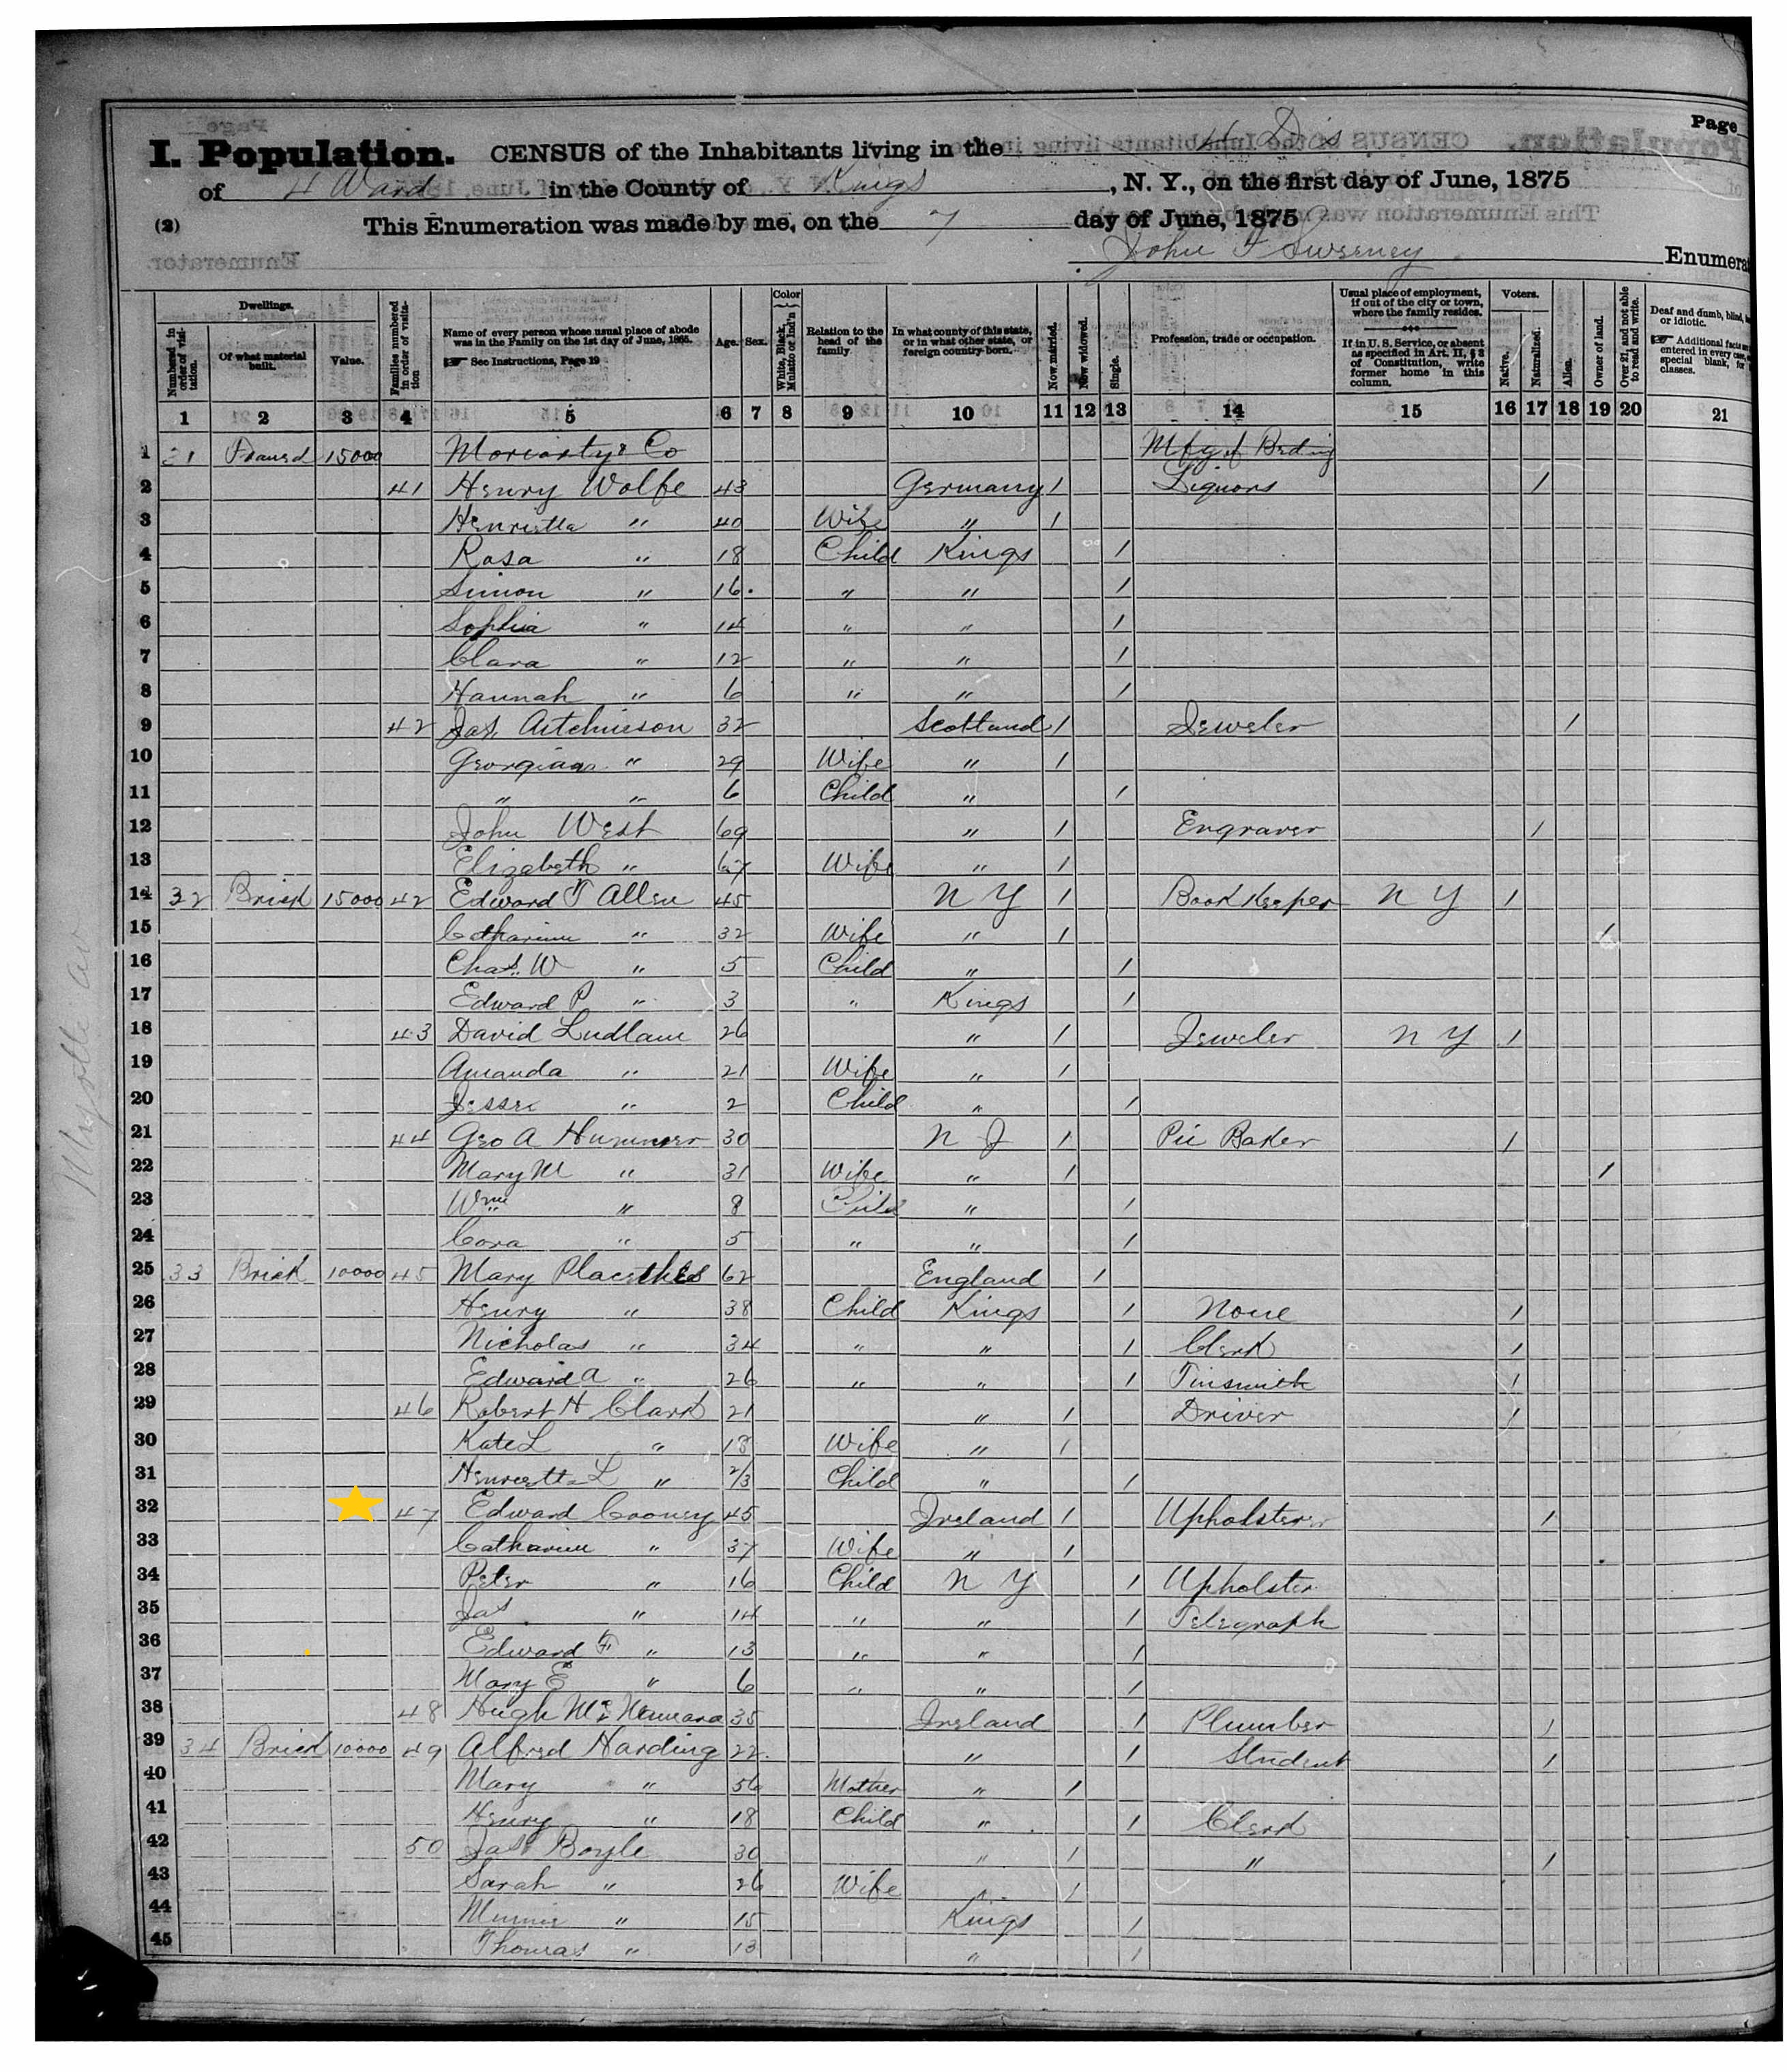 Page
I. Population. CENSUS of the Inhabitants living in the 4 Dis
of 4 Ward in the County of Kings, N. Y., on the first day of June, 1875
(2) This Enumeration was made by me, on the 7 day of June, 1875
John F Sweeney Enumera
Dwellings. Color Voters.
Numbered in order of visitation. Of what material built. Value. Families numbered in order of visitation Name of every person whose usual place of abode was in the Family on the 1st day of June, 1865. See Instructions, Page 19 Age. Sex. White, Black, Mulatto or Ind'n Relation to the head of the family. In what county of this state, or in what other state, or foreign country born. Now married. Now widowed. Single. Profession, trade or occupation. Usual place of employment, if out of the city or town, where the family resides. If in U. S. Service, or absent as specified in Art. II, § 3 of Constitution, write former home in this column. Native. Naturalized. Alien. Owner of land. Over 21, and not able to read and write. Deaf and dumb, blind, or idiotic. Additional facts entered in every case, special blank, for classes.
1 2 3 4 5 6 7 8 9 10 11 12 13 14 15 16 17 18 19 20 21
1 31 Framed 15000 Moriarty & Co Mfg of Beding
2 41 Henry Wolfe 43 Germany 1 Liquors 1
3 Henrietta " 40 Wife " 1
4 Rosa " 18 Child Kings 1
5 Simon " 16. " " 1
6 Sophia " 14 " " 1
7 Clara " 12 " " 1
8 Hannah " 6 " " 1
9 42 Jas. Aitchieson 32 Scotland 1 Jeweler 1
10 Georgiana " 29 Wife " 1
11 " " 6 Child " 1
12 John West 69 " 1 Engraver 1
13 Elizabeth " 67 Wife " 1
14 32 Brick 15000 42 Edward T Allen 45 N Y 1 Book Keeper N Y 1
15 Catharine " 32 Wife " 1 1
16 Chas. W " 5 Child " 1
17 Edward P " 3 " Kings 1
18 43 David Ludlam 26 " 1 Jeweler N Y 1
19 Amanda " 21 Wife " 1
20 Jesse " 2 Child " 1
21 44 Geo A Hummer 30 N J 1 Pie Baker 1
22 Mary M " 31 Wife " 1 1
23 Wm " 8 Child " 1
24 Cora " 5 " " 1
25 33 Brick 10000 45 Mary 62 England 1
26 Henry " 38 Child Kings 1 None 1
27 Nicholas " 34 " " 1 Clerk 1
28 Edward A " 26 " " 1 Tinsmith 1
29 46 Robert H Clark 21 " 1 Driver 1
30 Kate L " 18 Wife " 1
31 Henrietta L " 2/3 Child " 1
32 47 Edward Cooney 45 Ireland 1 Upholsterer 1
33 Catharine " 37 Wife " 1
34 Peter " 16 Child N Y 1 Upholster
35 Jas " 14 " " 1 Telegraph
36 Edward F " 13 " " 1
37 Mary E " 6 " " 1
38 48 Hugh McNemara 35 Ireland 1 Plumber 1
39 34 Brick 10000 49 Alfred Harding 22 " 1 Student 1
40 Mary " 56 Mother " 1
41 Henry " 18 Child " 1 Clerk
42 50 Jas Boyle 30 " 1 " 1
43 Sarah " 26 Wife " 1
44 Minnie " 15 Kings 1
45 Thomas " 13 " 1
Myrtle av